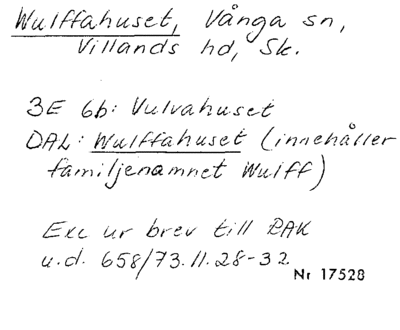 Wulffahuset, Vånga sn,
Villands hd, Sk.
3E 6b: Vulvahuset
DAL: Wulffahuset (innehåller
familjenamnet Wulff)
Exc ur brev till RAK
u.d. 658/73.11.28-32
Nr 17528